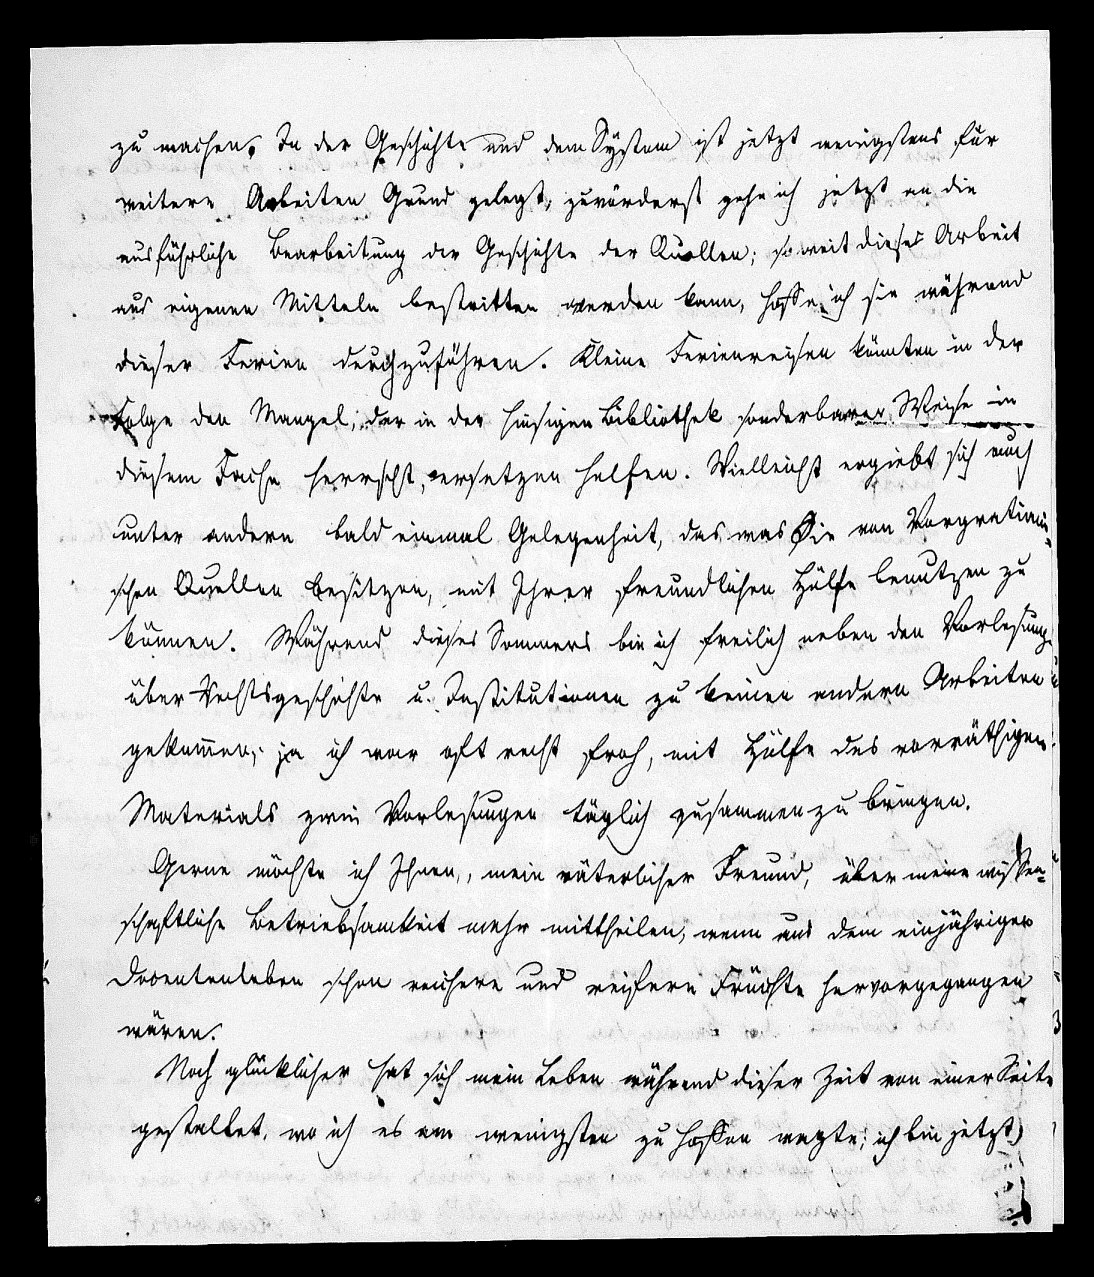 zu machen. In der Geschichte und dem System ist jetzt wenigstens für
weitere Arbeiten Grund gelegt, zuvörderst gehe ich jetzt an die
ausführliche Bearbeitung der Geschichte der Quellen; soweit dieses Arbeit
aus eigenen Mitteln bestritten werden kann, hoffe ich sie während
dieser Ferien durchzuführen. Kleine Ferienreisen könnten in der
Folge den Mangel, der in der hiesigen Bibliothek sonderbarer Weise in
diesem Fache herrscht, ersetzen helfen. Vielleicht ergiebt sich auch
unter andern bald einmal Gelegenheit, das was Sie von Vorgratiani-
schen Quellen besitzen, mit Ihrer freundlichen Hülfe benutzen zu
können. Während dieses Sommers bin ich freilich neben den Vorlesungen
über Rechtsgeschichte u. Institutionen zu keinen andern Arbeiten
gekommen; ja ich war oft recht froh, mit Hülfe des vorräthigen
Materials zwei Vorlesungen täglich zusammen zu bringen.
Gerne möchte ich Ihnen, mein väterlicher Freund, über meine wissen-
schaftliche Betriebsamkeit mehr mittheilen, wenn aus dem einjährigen
Docentenleben schon reichere und reifere Früchte hervorgegangen
wären.
Noch glücklicher hat sich mein Leben während dieser Zeit von einer Seite
gestaltet, wo ich es am wenigsten zu hoffen wagte; ich bin jetzt